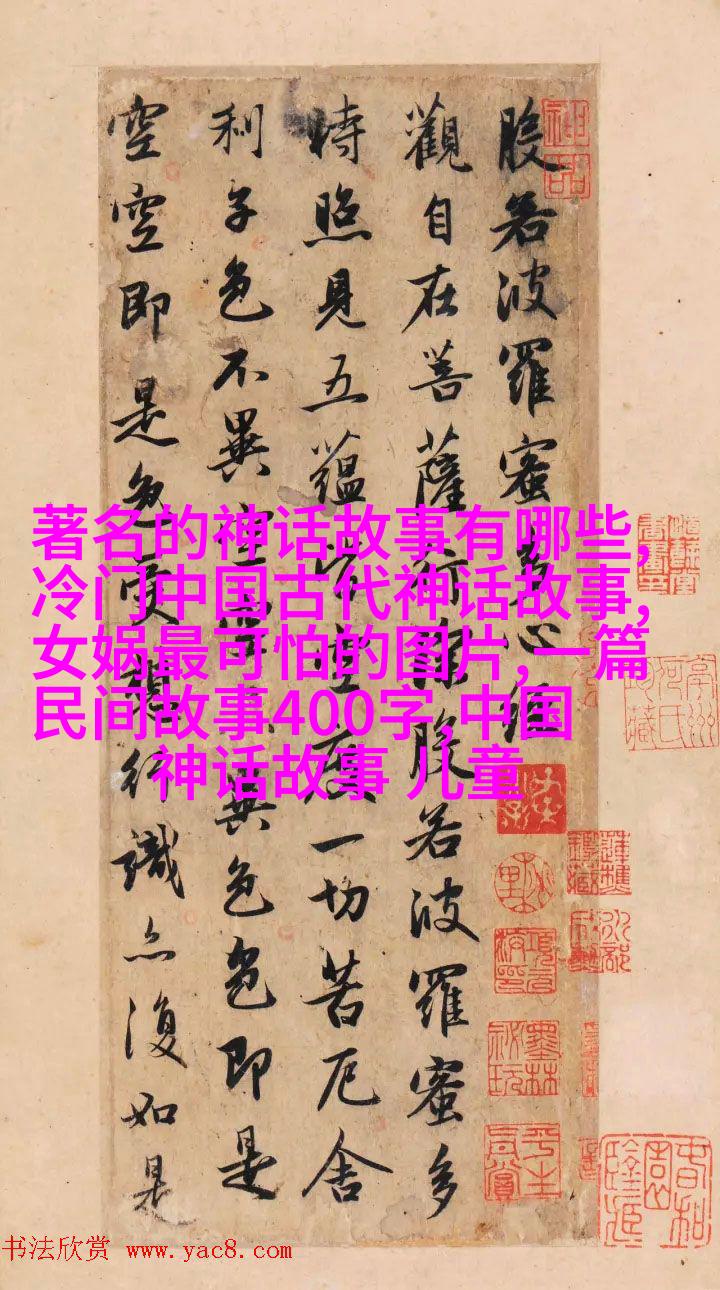 神品
般若波羅蜜多心經
觀自在菩薩行深般若波羅蜜多
時照見五蘊皆空度一切苦厄舍
利子色不異空空不異色色即是
空空即是色受想行識亦復如是
著名的神话故事有哪些,
冷门中国古代神话故事,
女娲最可怕的图片,一篇
民间故事400字,中国
神话故事 儿童
书法欣赏 www.yac8.com